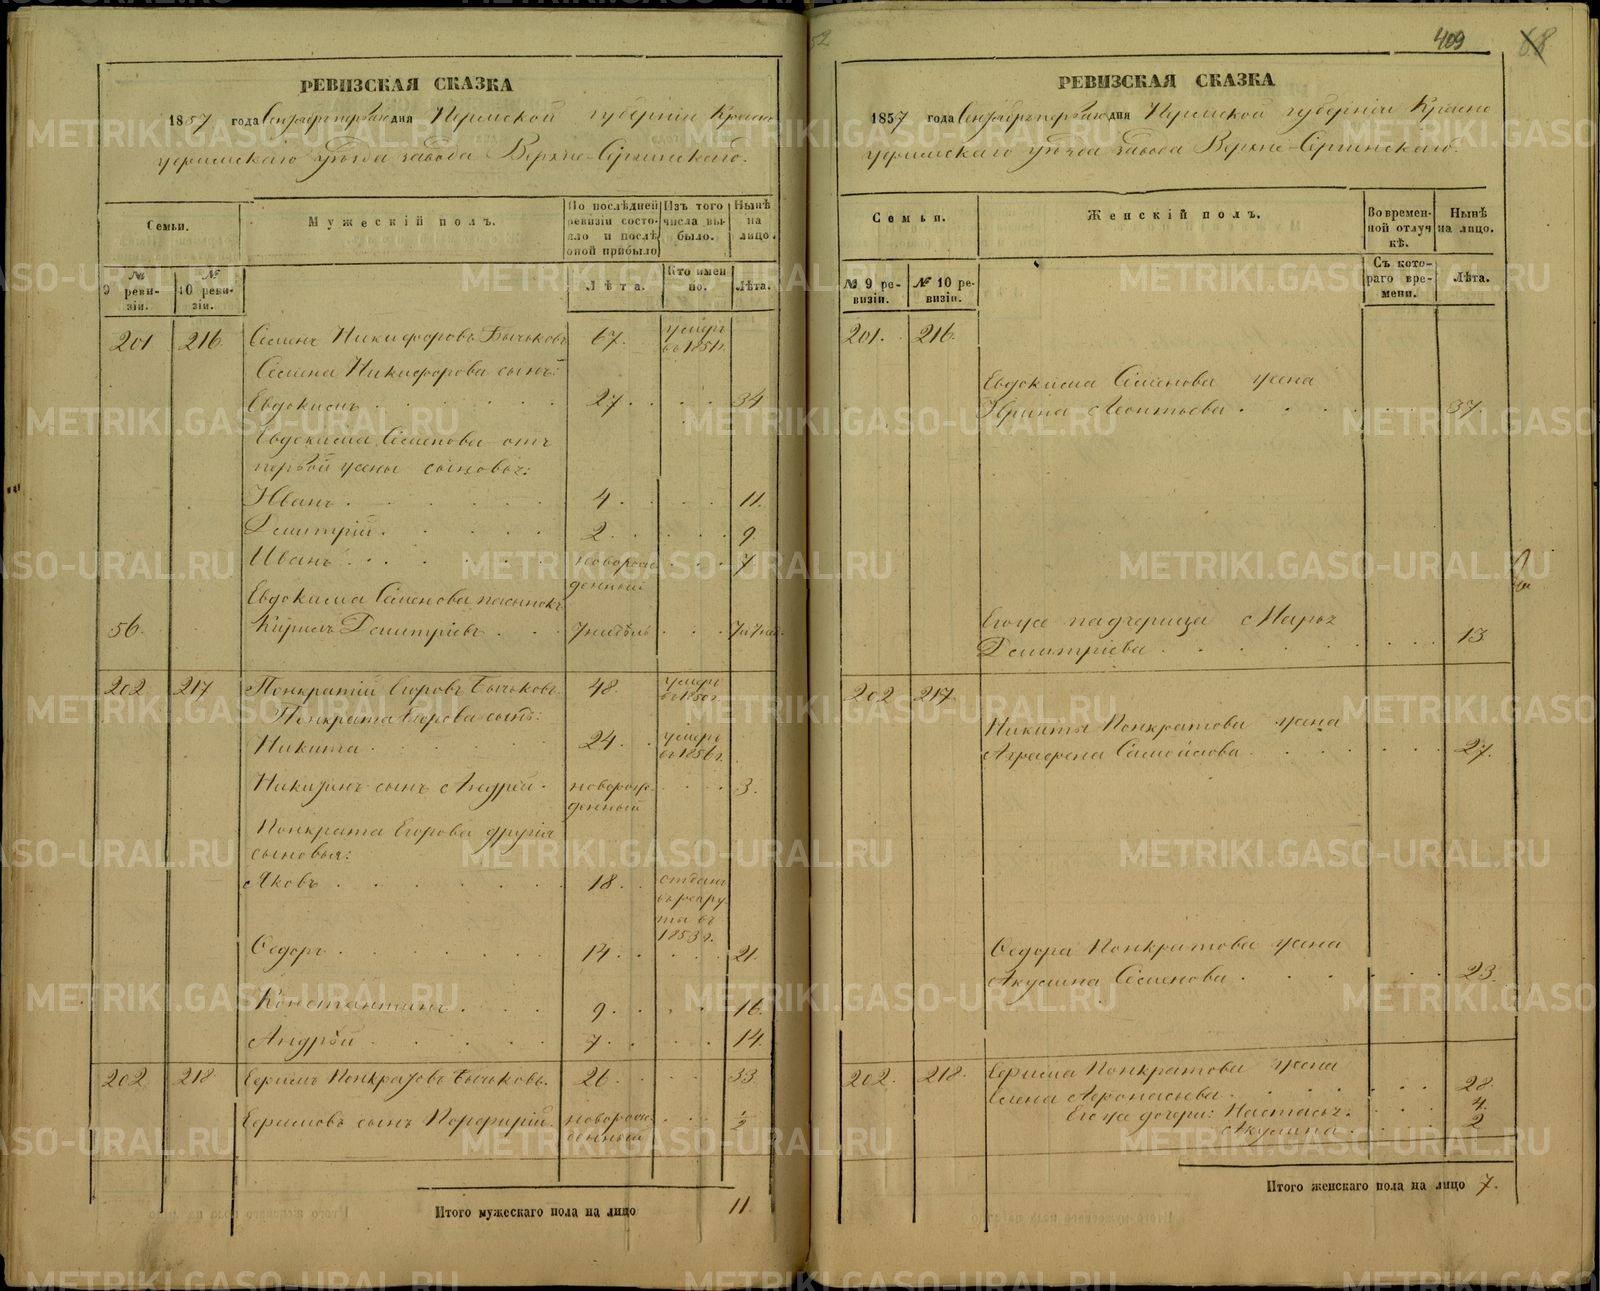 52
РЕВИЗСКАЯ СКАЗКА
1857 года Сентября первого дня Пермской губерніи Красно
уфимскаго уѣзда завода Верхне-Сергинскаго.
Семьи.
Мужескій полъ.
По послѣдней ревизіи состояло и послѣ оной прибыло
Изъ того числа выбыло.
Нынѣ на лицо.
№ 9 ревизіи.
№ 10 ревизіи.
Лѣта.
Кто именно.
Лѣта.
201 216 Семенъ Никифоровъ Бычьковъ 67. умеръ въ 1851 г.
Семена Никифорова сынъ:
Евдокимъ 27 34
Евдокима Семенова отъ
первой жены сыновья:
Иванъ 4 11.
Дмитрій 2. 9
Иванъ новорожденный 7
Евдокима Семенова пасынокъ
56. Кирилъ Дмитріевъ 7 недѣль 7 и 7 нед.
202 217 Понкратій Егоровъ Бычьковъ. 48. умеръ въ 1850 г.
Понкрата Егорова сынъ:
Никита 24. умеръ въ 1856 г.
Никитинъ сынъ Андрей новорожденный 3.
Понкрата Егорова другія
сыновья:
Яковъ 18. отданъ въ рекрута въ 1853 г.
Ѳедоръ 14. 21.
Константинъ 9 16.
Андрѣй 7. 14.
202 218 Ефимъ Понкратовъ Бычьковъ. 26 33
Ефимовъ сынъ Порфирій. новорожденный 1/2
Итого мужескаго пола на лицо 11
409
68
РЕВИЗСКАЯ СКАЗКА
1857 года Сентября первого дня Пермской губерніи Красно
уфимскаго уѣзда завода Верхне-Сергинскаго.
Семьи.
Женскій полъ.
Во временной отлучкѣ.
Нынѣ на лицо.
№ 9 ревизіи.
№ 10 ревизіи.
Съ котораго времени.
Лѣта.
201. 216.
Евдокима Семенова жена
Ирина Леонтьева 37.
Его же падчерица Марья
Дмитріева 13
202 217.
Никиты Понкратова жена
Аграфена Самойлова 27.
Ѳедора Понкратова жена
Акулина Семенова 23.
202. 218. Ефима Понкратова жена
Елена Афонасьева 28.
Его же дочери: Настасья. 4.
Акулина 2
Итого женскаго пола на лицо 7.
METRIKI.GASO-URAL.RU